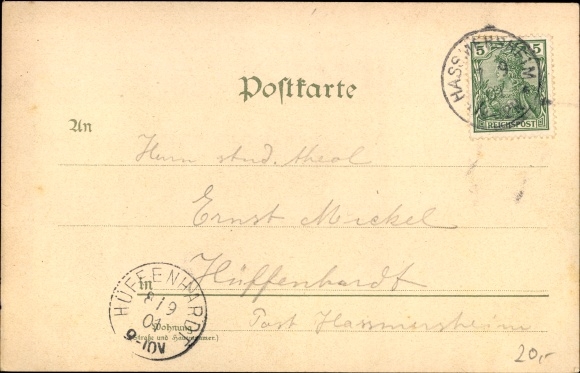 5 5
REICHSPOST
HASSMERSHEIM
Postkarte
An
Herrn stud. theol
Ernst Mickel
in Hüffenhardt
HÜFFENHARDT
6-7N
Wohnung
(Straße und Hausnummer.)
Post Hassmersheim
20,-